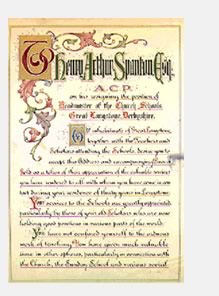 To Henry Arthur Spanton Esq.
A.C.P.
on his resigning the position of
Headmaster of the Church Schools,
Great Longstone, Derbyshire.
We inhabitants of Great Longstone,
together with the Teachers and
Scholars attending the Schools, beg you to
accept this Address and accompanying of
Gold as a token of their appreciation of the valuable services
you have rendered to all with whom you have come in con-
tact during your residence of thirty years in Longstone.
Your services to the Schools are greatly appreciated
particularly by those of your old Scholars who are now
holding good positions in various parts of the world.
You have not confined yourself to the arduous
work of teaching. You have given much valuable
time in other spheres, particularly in connection with
the Church, the Sunday School and various social